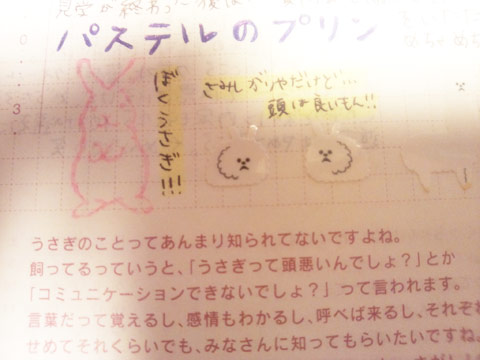 見学が終わった後は
パステルのプリン
ぼくうさぎ!!!
さみしがりやだけど…
頭は良いもん!!
3
うさぎのことってあんまり知られてないですよね。
飼ってるっていうと、「うさぎって頭悪いんでしょ?」とか
「コミュニケーションできないでしょ?」って言われます。
言葉だって覚えるし、感情もわかるし、呼べば来るし、それぞれ
せめてそれくらいでも、みなさんに知ってもらいたいですね。